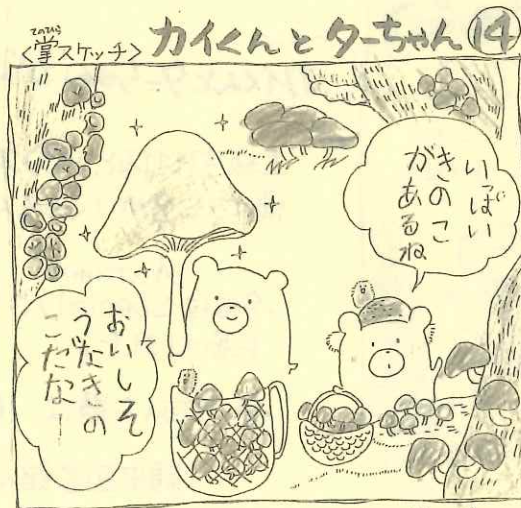 <掌スケッチ> カイくんとターちゃん ⑭
てのひら
いっぱい
きのこ
があるね
おいしそ
うなきの
こだなー